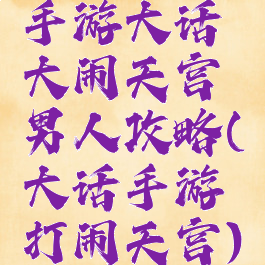 手游大话
大闹天宫
男人攻略(
大话手游
打闹天宫)